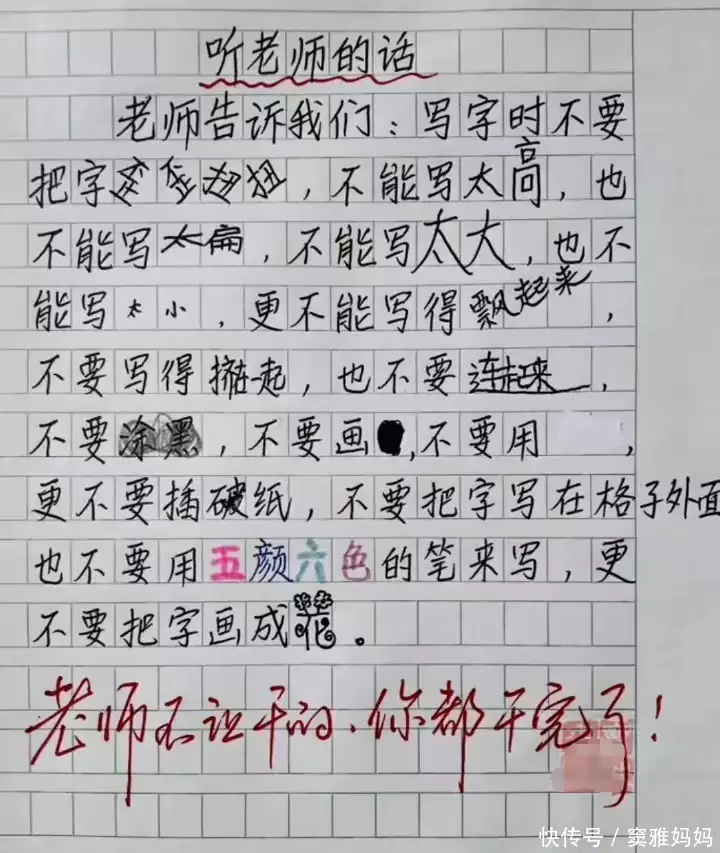 听老师的话
老师告诉我们：写字时不要
把字歪歪扭扭，不能写太高，也
不能写太扁，不能写太大，也不
能写太小，更不能写得飘起来，
不要写得挤在一起，也不要连起来，
不要涂黑，不要画，不要用，
更不要插破纸，不要把字写在格子外面
也不要用五颜六色的笔来写，更
不要把字画成花。
老师不让干的，你都干完了！
快传号 / 窦雅妈妈